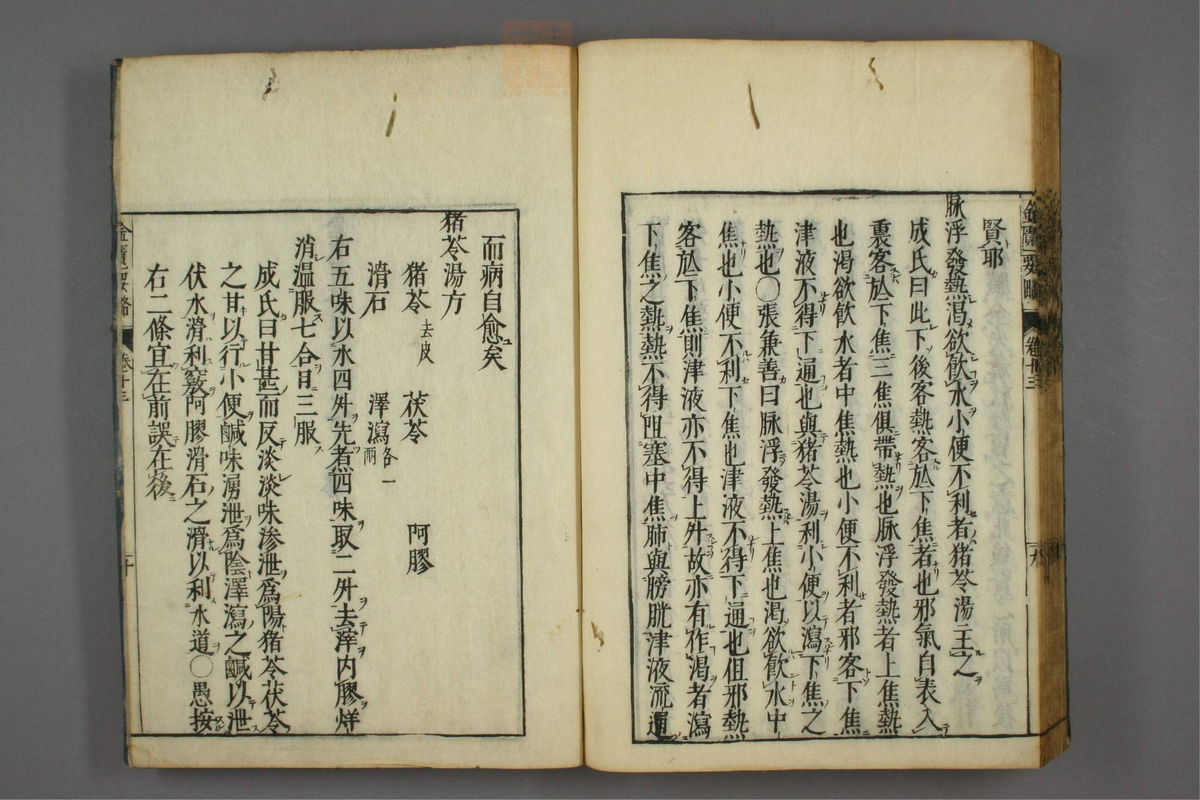 賢耶
脉浮發熱渴欲飮水小便不利者猪苓湯主之
成氏曰此下後客熱客於下焦者也邪氣自表入
裏客於下焦三焦俱帶熱也脉浮發熱者上焦熱
也渴欲飮水者中焦熱也小便不利者邪客下焦
津液不得下通也與猪苓湯利小便以瀉下焦之
熱也○張兼善曰脉浮發熱上焦也渴欲飮水中
焦也小便不利下焦也津液不得下通也但邪熱
客於下焦則津液亦不得上升故亦有作渴者瀉
下焦之熱熱不得阻塞中焦肺與膀胱津液流通
金匱要略 卷十三
而病自愈矣
猪苓湯方
猪苓去皮 茯苓 阿膠
滑石 澤瀉各一兩
右五味以水四升先煮四味取二升去滓内膠烊
消温服七合日三服
成氏曰甘甚而反淡淡味渗泄爲陽猪苓茯苓
之甘以行小便鹹味湧泄爲陰澤瀉之鹹以泄
伏水滑利竅阿膠滑石之滑以利水道○愚按
右二條宜在前誤在後
金匱要略 卷十三 二十